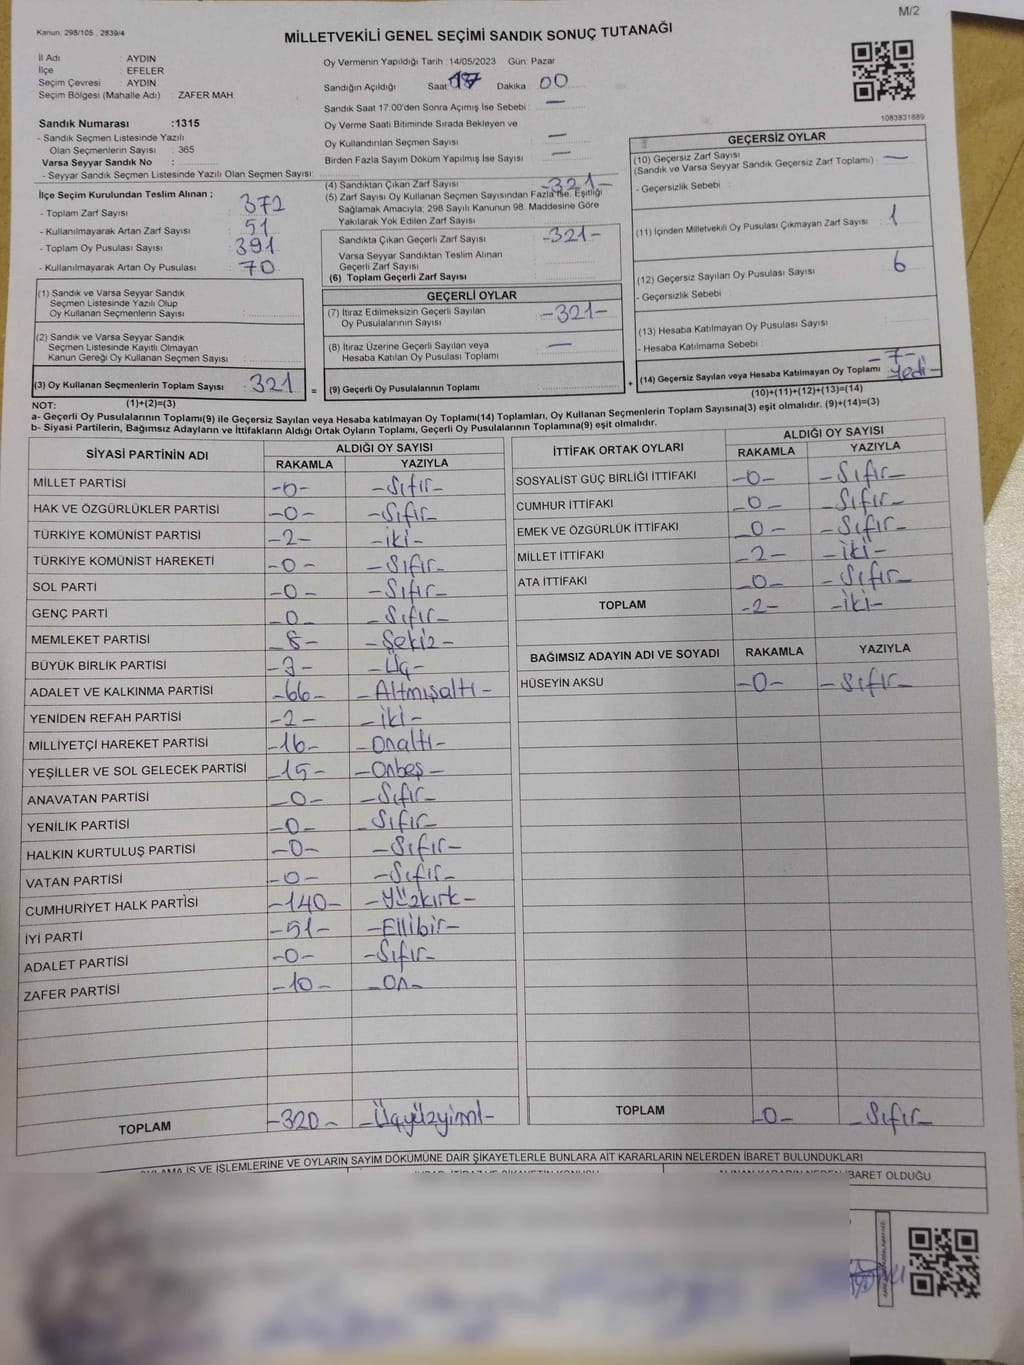 M/2
Kanun: 298/105 , 2839/4
MİLLETVEKİLİ GENEL SEÇİMİ SANDIK SONUÇ TUTANAĞI
İl Adı : AYDIN
İlçe : EFELER
Seçim Çevresi : AYDIN
Seçim Bölgesi (Mahalle Adı) : ZAFER MAH.
Sandık Numarası :1315
- Sandık Seçmen Listesinde Yazılı
Olan Seçmenlerin Sayısı : 365
Varsa Seyyar Sandık No :
- Seyyar Sandık Seçmen Listesinde Yazılı Olan Seçmen Sayısı:
Oy Vermenin Yapıldığı Tarih :14/05/2023 Gün: Pazar
Sandığın Açıldığı Saat 17 Dakika 00
Sandık Saat 17:00'den Sonra Açımış İse Sebebi : —
Oy Verme Saati Bitiminde Sırada Bekleyen ve
Oy Kullandırılan Seçmen Sayısı —
Birden Fazla Sayım Döküm Yapılmış İse Sayısı —
1083831889
İlçe Seçim Kurulundan Teslim Alınan ;
- Toplam Zarf Sayısı : 372
- Kullanılmayarak Artan Zarf Sayısı : 51
- Toplam Oy Pusulası Sayısı : 391
- Kullanılmayarak Artan Oy Pusulası : 70
(1) Sandık ve Varsa Seyyar Sandık
Seçmen Listesinde Yazılı Olup
Oy Kullanan Seçmenlerin Sayısı :
(2) Sandık ve Varsa Seyyar Sandık
Seçmen Listesinde Kayıtlı Olmayan
Kanun Gereği Oy Kullanan Seçmen Sayısı :
(3) Oy Kullanan Seçmenlerin Toplam Sayısı : 321 =
(1)+(2)=(3)
(4) Sandıktan Çıkan Zarf Sayısı -321-
(5) Zarf Sayısı Oy Kullanan Seçmen Sayısından Fazla İse, Eşitliği
Sağlamak Amacıyla, 298 Sayılı Kanunun 98. Maddesine Göre
Yakılarak Yok Edilen Zarf Sayısı :
Sandıkta Çıkan Geçerli Zarf Sayısı -321-
Varsa Seyyar Sandıktan Teslim Alınan
Geçerli Zarf Sayısı :
(6) Toplam Geçerli Zarf Sayısı :
GEÇERLİ OYLAR
(7) İtiraz Edilmeksizin Geçerli Sayılan
Oy Pusulalarının Sayısı : -321-
(8) İtiraz Üzerine Geçerli Sayılan veya
Hesaba Katılan Oy Pusulası Toplamı : —
(9) Geçerli Oy Pusulalarının Toplamı : +
GEÇERSİZ OYLAR
(10) Geçersiz Zarf Sayısı
(Sandık ve Varsa Seyyar Sandık Geçersiz Zarf Toplamı) —
- Geçersizlik Sebebi :
(11) İçinden Milletvekili Oy Pusulası Çıkmayan Zarf Sayısı : 1
(12) Geçersiz Sayılan Oy Pusulası Sayısı : 6
- Geçersizlik Sebebi :
(13) Hesaba Katılmayan Oy Pusulası Sayısı :
- Hesaba Katılmama Sebebi :
(14) Geçersiz Sayılan veya Hesaba Katılmayan Oy Toplamı -7- Yedi-
(10)+(11)+(12)+(13)=(14)
NOT:
a- Geçerli Oy Pusulalarının Toplamı(9) ile Geçersiz Sayılan veya Hesaba katılmayan Oy Toplamı(14) Toplamları, Oy Kullanan Seçmenlerin Toplam Sayısına(3) eşit olmalıdır. (9)+(14)=(3)
b- Siyasi Partilerin, Bağımsız Adayların ve İttifakların Aldığı Ortak Oyların Toplamı, Geçerli Oy Pusulalarının Toplamına(9) eşit olmalıdır.
SİYASİ PARTİNİN ADI ALDIĞI OY SAYISI
RAKAMLA YAZIYLA
MİLLET PARTİSİ -0- -Sıfır-
HAK VE ÖZGÜRLÜKLER PARTİSİ -0- -Sıfır-
TÜRKİYE KOMÜNİST PARTİSİ -2- -iki-
TÜRKİYE KOMÜNİST HAREKETİ -0- -Sıfır-
SOL PARTİ -0- -Sıfır-
GENÇ PARTİ -0- -Sıfır-
MEMLEKET PARTİSİ -8- -Şekiz-
BÜYÜK BİRLİK PARTİSİ -3- -Üç-
ADALET VE KALKINMA PARTİSİ -66- -Altmışaltı-
YENİDEN REFAH PARTİSİ -2- -iki-
MİLLİYETÇİ HAREKET PARTİSİ -16- -Onaltı-
YEŞİLLER VE SOL GELECEK PARTİSİ -15- -Onbeş-
ANAVATAN PARTİSİ -0- -Sıfır-
YENİLİK PARTİSİ -0- -Sıfır-
HALKIN KURTULUŞ PARTİSİ -0- -Sıfır-
VATAN PARTİSİ -0- -Sıfır-
CUMHURİYET HALK PARTİSİ -140- -Yüzkırk-
İYİ PARTİ -51- -Ellibir-
ADALET PARTİSİ -0- -Sıfır-
ZAFER PARTİSİ -10- -On-
TOPLAM -320- -Üçyüzyirmi-
İTTİFAK ORTAK OYLARI ALDIĞI OY SAYISI
RAKAMLA YAZIYLA
SOSYALİST GÜÇ BİRLİĞİ İTTİFAKI -0- -Sıfır-
CUMHUR İTTİFAKI -0- -Sıfır-
EMEK VE ÖZGÜRLÜK İTTİFAKI -0- -Sıfır-
MİLLET İTTİFAKI -2- -iki-
ATA İTTİFAKI -0- -Sıfır-
TOPLAM -2- -iki-
BAĞIMSIZ ADAYIN ADI VE SOYADI RAKAMLA YAZIYLA
HÜSEYİN AKSU -0- -Sıfır-
TOPLAM -0- -Sıfır-
İŞ VE İŞLEMLERİNE VE OYLARIN SAYIM DÖKÜMÜNE DAİR ŞİKAYETLERLE BUNLARA AİT KARARLARIN NELERDEN İBARET BULUNDUKLARI
İBARET OLDUĞU